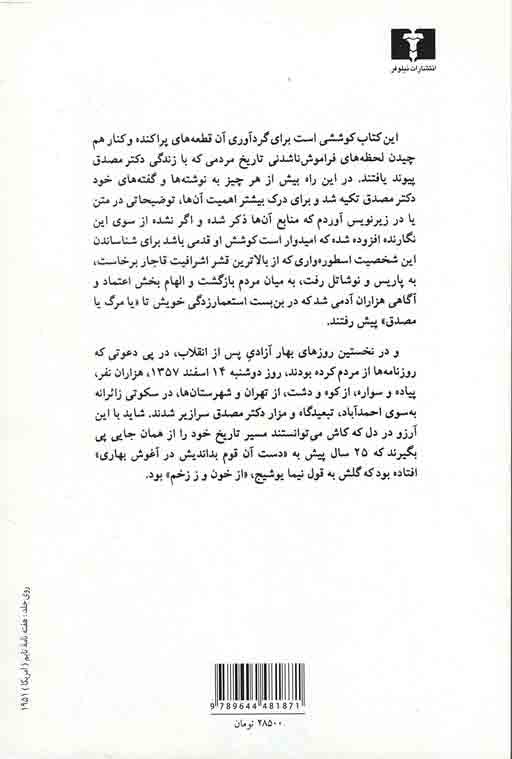 انتشارات نیلوفر
این کتاب کوششی است برای گردآوری آن قطعه‌های پراکنده و کنار هم
چیدن لحظه‌های فراموش‌ناشدنی تاریخ مردمی که با زندگی دکتر مصدق
پیوند یافتند. در این راه بیش از هر چیز به نوشته‌ها و گفته‌های خود
دکتر مصدق تکیه شد و برای درک بیشتر اهمیت آن‌ها، توضیحاتی در متن
یا در زیرنویس آوردم که منابع آن‌ها ذکر شده و اگر نشده از سوی این
نگارنده افزوده شده که امیدوار است کوشش او قدمی باشد برای شناساندن
این شخصیت اسطوره‌واری که از بالاترین قشر اشرافیت قاجار برخاست،
به پاریس و نوشاتل رفت، به میان مردم بازگشت و الهام بخش اعتماد و
آگاهی هزاران آدمی شد که در بن‌بست استعمارزدگی خویش تا «یا مرگ یا
مصدق» پیش رفتند.
و در نخستین روزهای بهار آزادیِ پس از انقلاب، در پی دعوتی که
روزنامه‌ها از مردم کرده بودند، روز دوشنبه ۱۴ اسفند ۱۳۵۷، هزاران نفر،
پیاده و سواره، از کوه و دشت، از تهران و شهرستان‌ها، در سکوتی زائرانه
به‌سوی احمدآباد، تبعیدگاه و مزار دکتر مصدق سرازیر شدند. شاید با این
آرزو در دل که کاش می‌توانستند مسیر تاریخ خود را از همان جایی پی
بگیرند که ۲۵ سال پیش به «دست آن قوم بداندیش در آغوش بهاری»
افتاده بود که گلش به قول نیما یوشیج، «از خون و ز زخم» بود.
روی جلد: هفته نامهٔ تایم (امریکا) ۱۹۵۱
9 789644 481871
۲۸۵۰۰ تومان